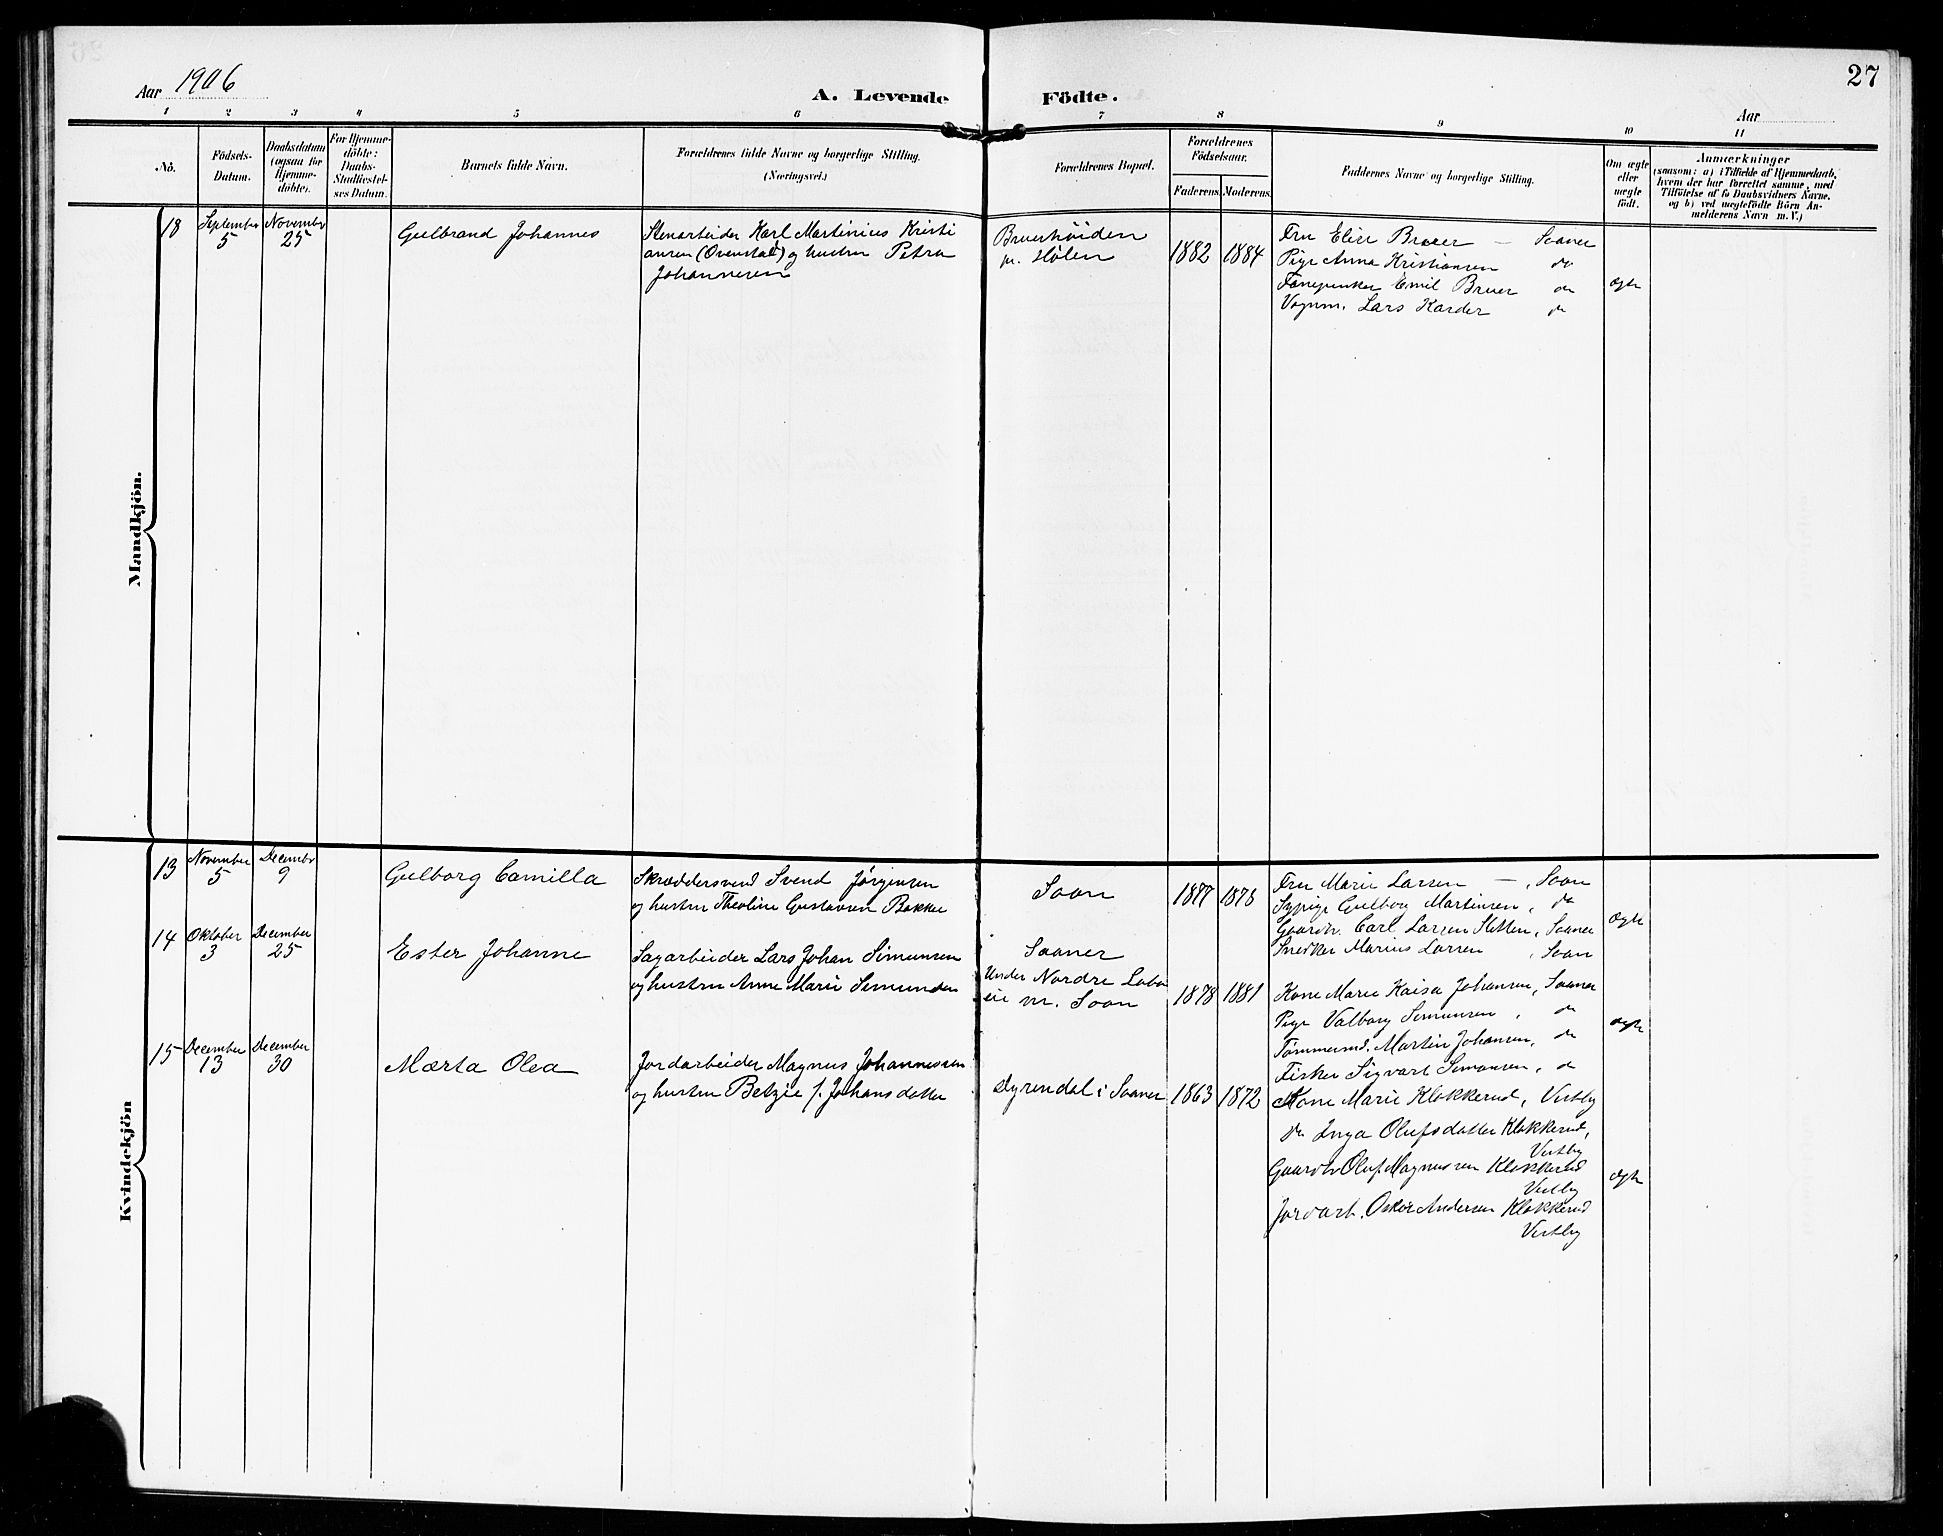 27
Aar 1906
A. Levende Födte.
Aar
1 2 3 4 5 6 7 8 9 10 11
No.
Födsels-
Datum.
Daabsdatum
(ogsaa for
Hjemme-
döbte).
For Hjemme-
döbte:
Daabs-
Stadfæstel-
ses Datum.
Barnets fulde Navn.
Forældrenes fulde Navne og borgerlige Stilling.
(Næringsvei.)
Forældrenes Bopæl.
Forældrenes
Födselsaar.
Faderens. Moderens.
Faddernes Navne og borgerlige Stilling.
Om ægte
eller
uægte
födt.
Anmærkninger
(saasom: a) i Tilfælde af Hjemmedaab,
hvem der har forrettet samme, med
Tilföielse af to Daabsvidners Navne,
og b) ved uægtefödte Börn An-
melderens Navn m. V.)
Mandkjön.
18
September
5
November
25
Gulbrand Johannes
Stenarbeider Karl Martinius Kristi
ansen (Ovenstad) og hustru Petra
Johannesen
Bruerhöiden
pr. Hölen
1882
1884
Fru Elise Bruer — Saaner
Pige Anna Kristiansen do
Emil Bruer do
Vognm. Lars Karder do
ægte
Kvindekjön
13
November
5
Decembr
9
Gulborg Camilla
Skræddersvend Svend Jørgensen
og hustru Theoline Gustavsen Bakke
Soon
1877
1878
Fru Marie Larsen — , Soon
Sypige Gulborg Martinsen, do
Gaardbr. Carl Larsen Sletten, Saaner
Snedker Marius Larsen , Soon
ægte
14
Oktober
3
December
25
Ester Johanne
Sagarbeider Lars Johan Simensen
og hustru Anne Marie Simensen
Saaner
Under Nordre Laba
eie nr. Soon
1878
1881
Kone Marie Kaisa Johansen, Saaner
Pige Valborg Simensen , do
Tømmermd. Martin Johansen, do
Fisker Sigvart Simensen, do
ægte
15
December
13
December
30
Mærta Olea
Jordarbeider Magnus Johannessen
og hustru Betzie f. Johansdatter
Dyrendal i Saaner
1863
1872
Kone Marie Klokkerud, Vestby
do Inga Olufsdatter Klokkerud,
Vestby
Gaardbr Oluf Magnussen Klokkerud
Vestby
Jordarb. Oskar Andersen Klokkerud
Vestby
ægte